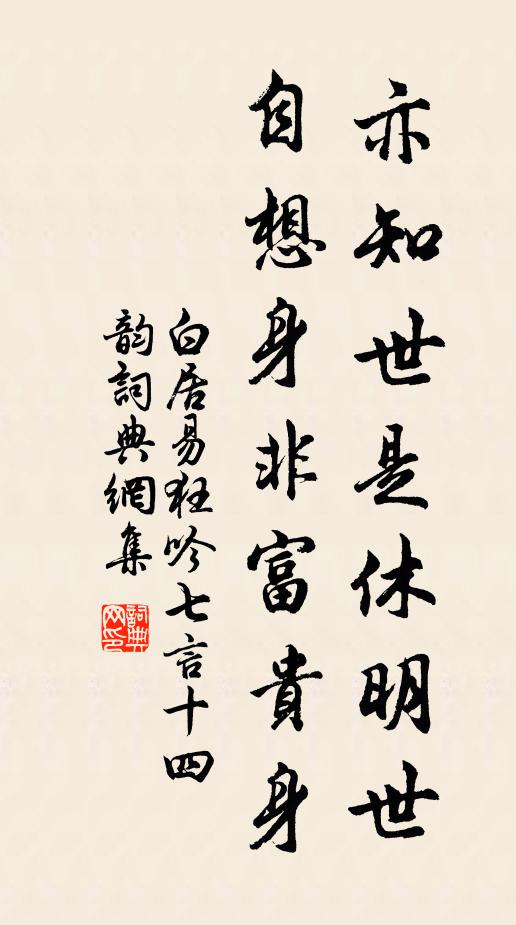 亦知世是休明世
自想身非富貴身
白居易狂吟七言十四
韵詞典網集
詞典网印